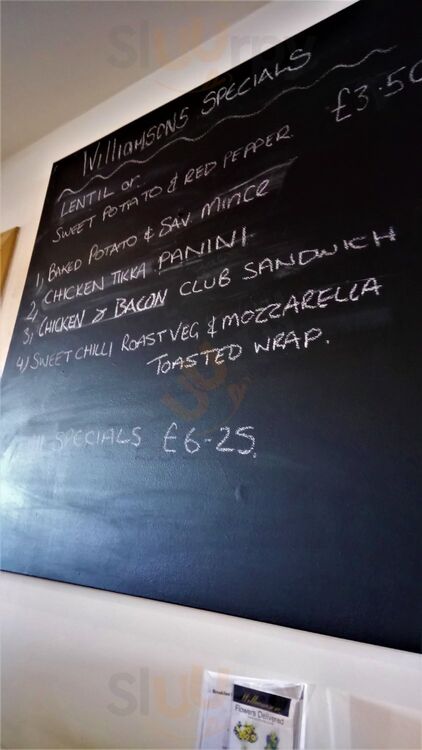 Sluurpy
WilliamSONS SPECIALS
LENTIL or. £3.50
SWEET POTATO & RED PEPPER.
1, BAKED POTATO & SAV MINCE
2, CHICKEN TIKKA PANINI.
3, CHICKEN & BACON CLUB SANDWICH
4) SWEET CHILLI ROAST VEG & MOZZARELLA
TOASTED WRAP.
All SPECIALS £6-25.
Flowers Delivered
Sluurpy